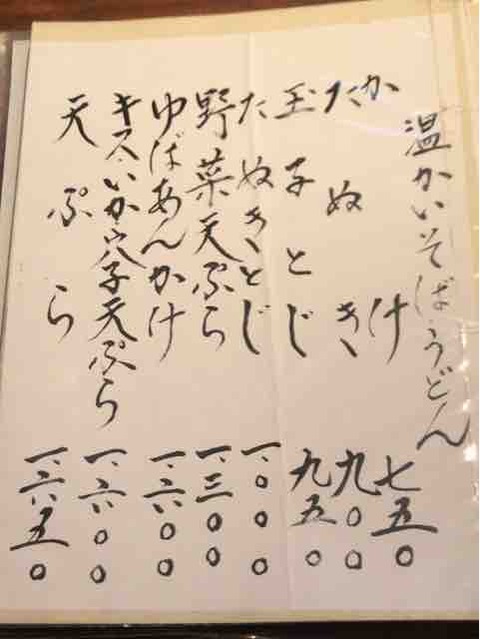 温かいそば・うどん
かけ 七五〇
たぬき 九〇〇
玉子とじ 九五〇
たぬきとじ 一、〇〇〇
野菜天ぷら 一、三〇〇
ゆばあんかけ 一、六〇〇
キス、いか、穴子天ぷら 一、六〇〇
天ぷら 一、六五〇